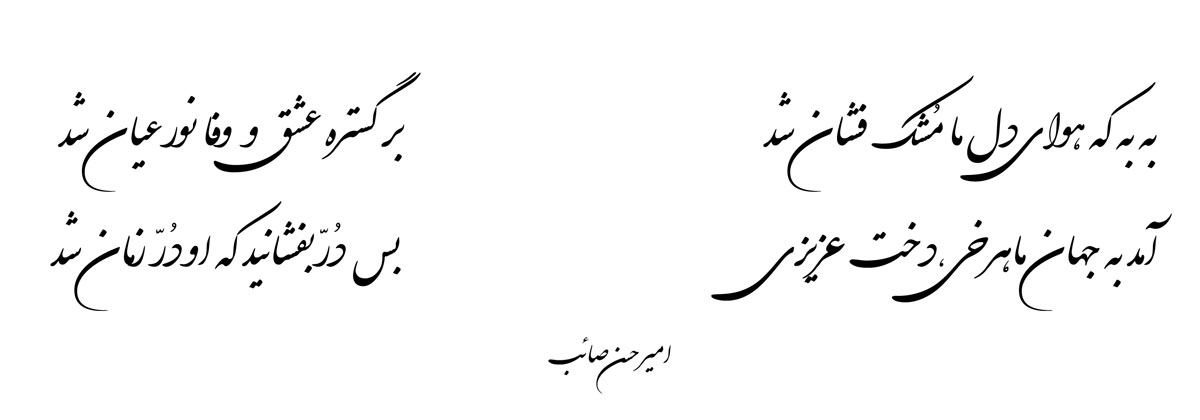 به به که هوای دل ما مُشک فشان شد
بر گستره عشق و وفا نور عیان شد
آمد به جهان ماهرخی، دخت عزیزی
بس دُرّ بفشانید که او دُرّ زمان شد
امیرحسن صائب